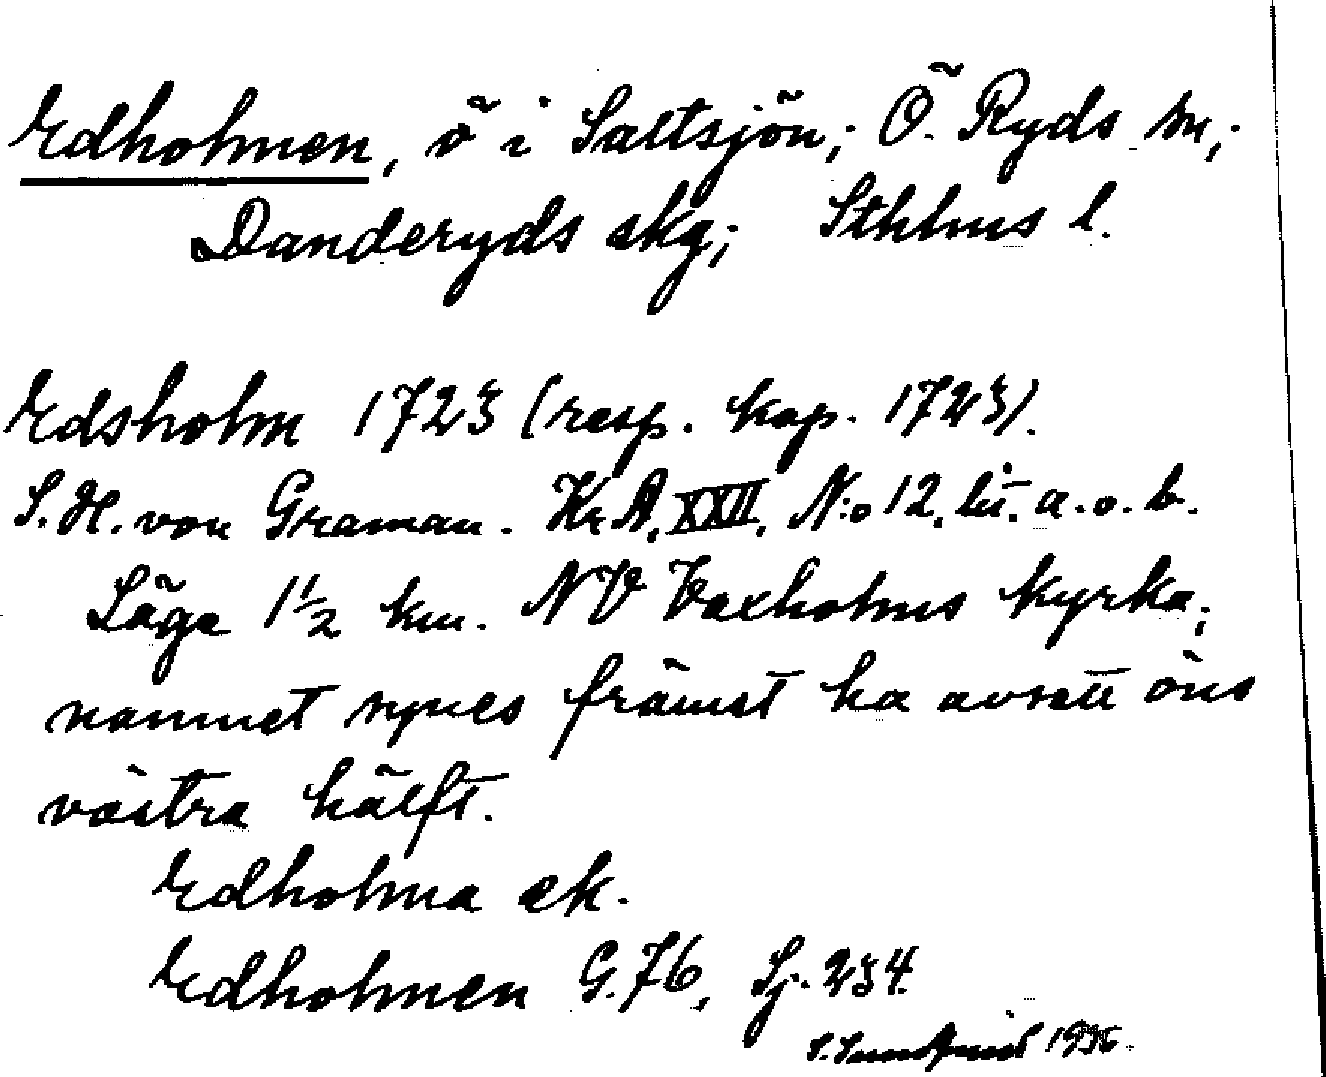 Edholmen, ö i Saltsjön; Ö. Ryds sn;
Danderyds skg; Sthlms l.
Edsholm 1723 (resp. kop. 1723).
S. H. von Graman. Kr A, XXII, N:o 12, lit. a. o. b.
Läge 1 1/2 km. NV Vaxholms kyrka;
namnet synes främst ha avsett öns
västra hälft.
Edholma ek.
Edholmen G. 76, Sj. 234.
S. Sundquist 1936.